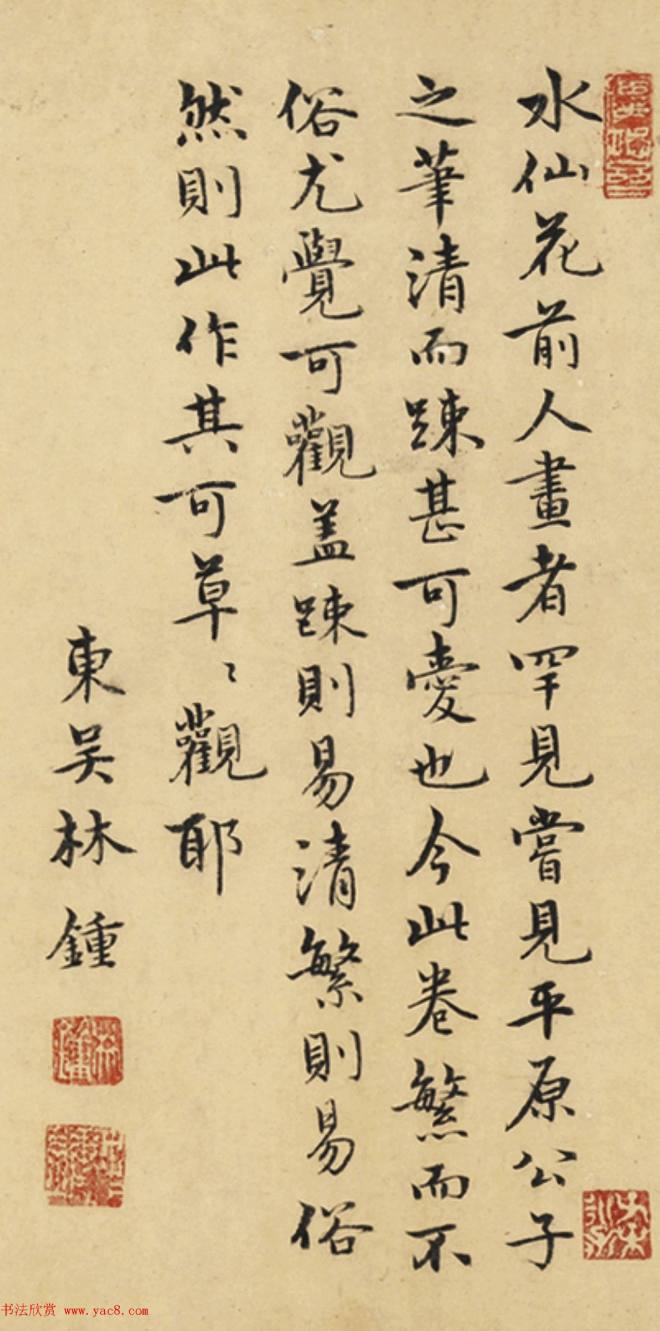 水仙花前人畫者罕見嘗見平原公子
之筆清而踈甚可愛也今此卷繁而不
俗尤覺可觀盖踈則易清繁則易俗
然則此作其可草〻觀耶
東吴林鍾
书法欣赏 www.yac8.com